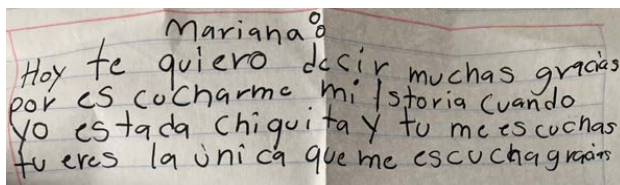 Mariana:
Hoy te quiero decir muchas gracias
por es cucharme mi Istoria cuando
yo estada chiquita y tu me escuchas
tu eres la única que me escucha gracias